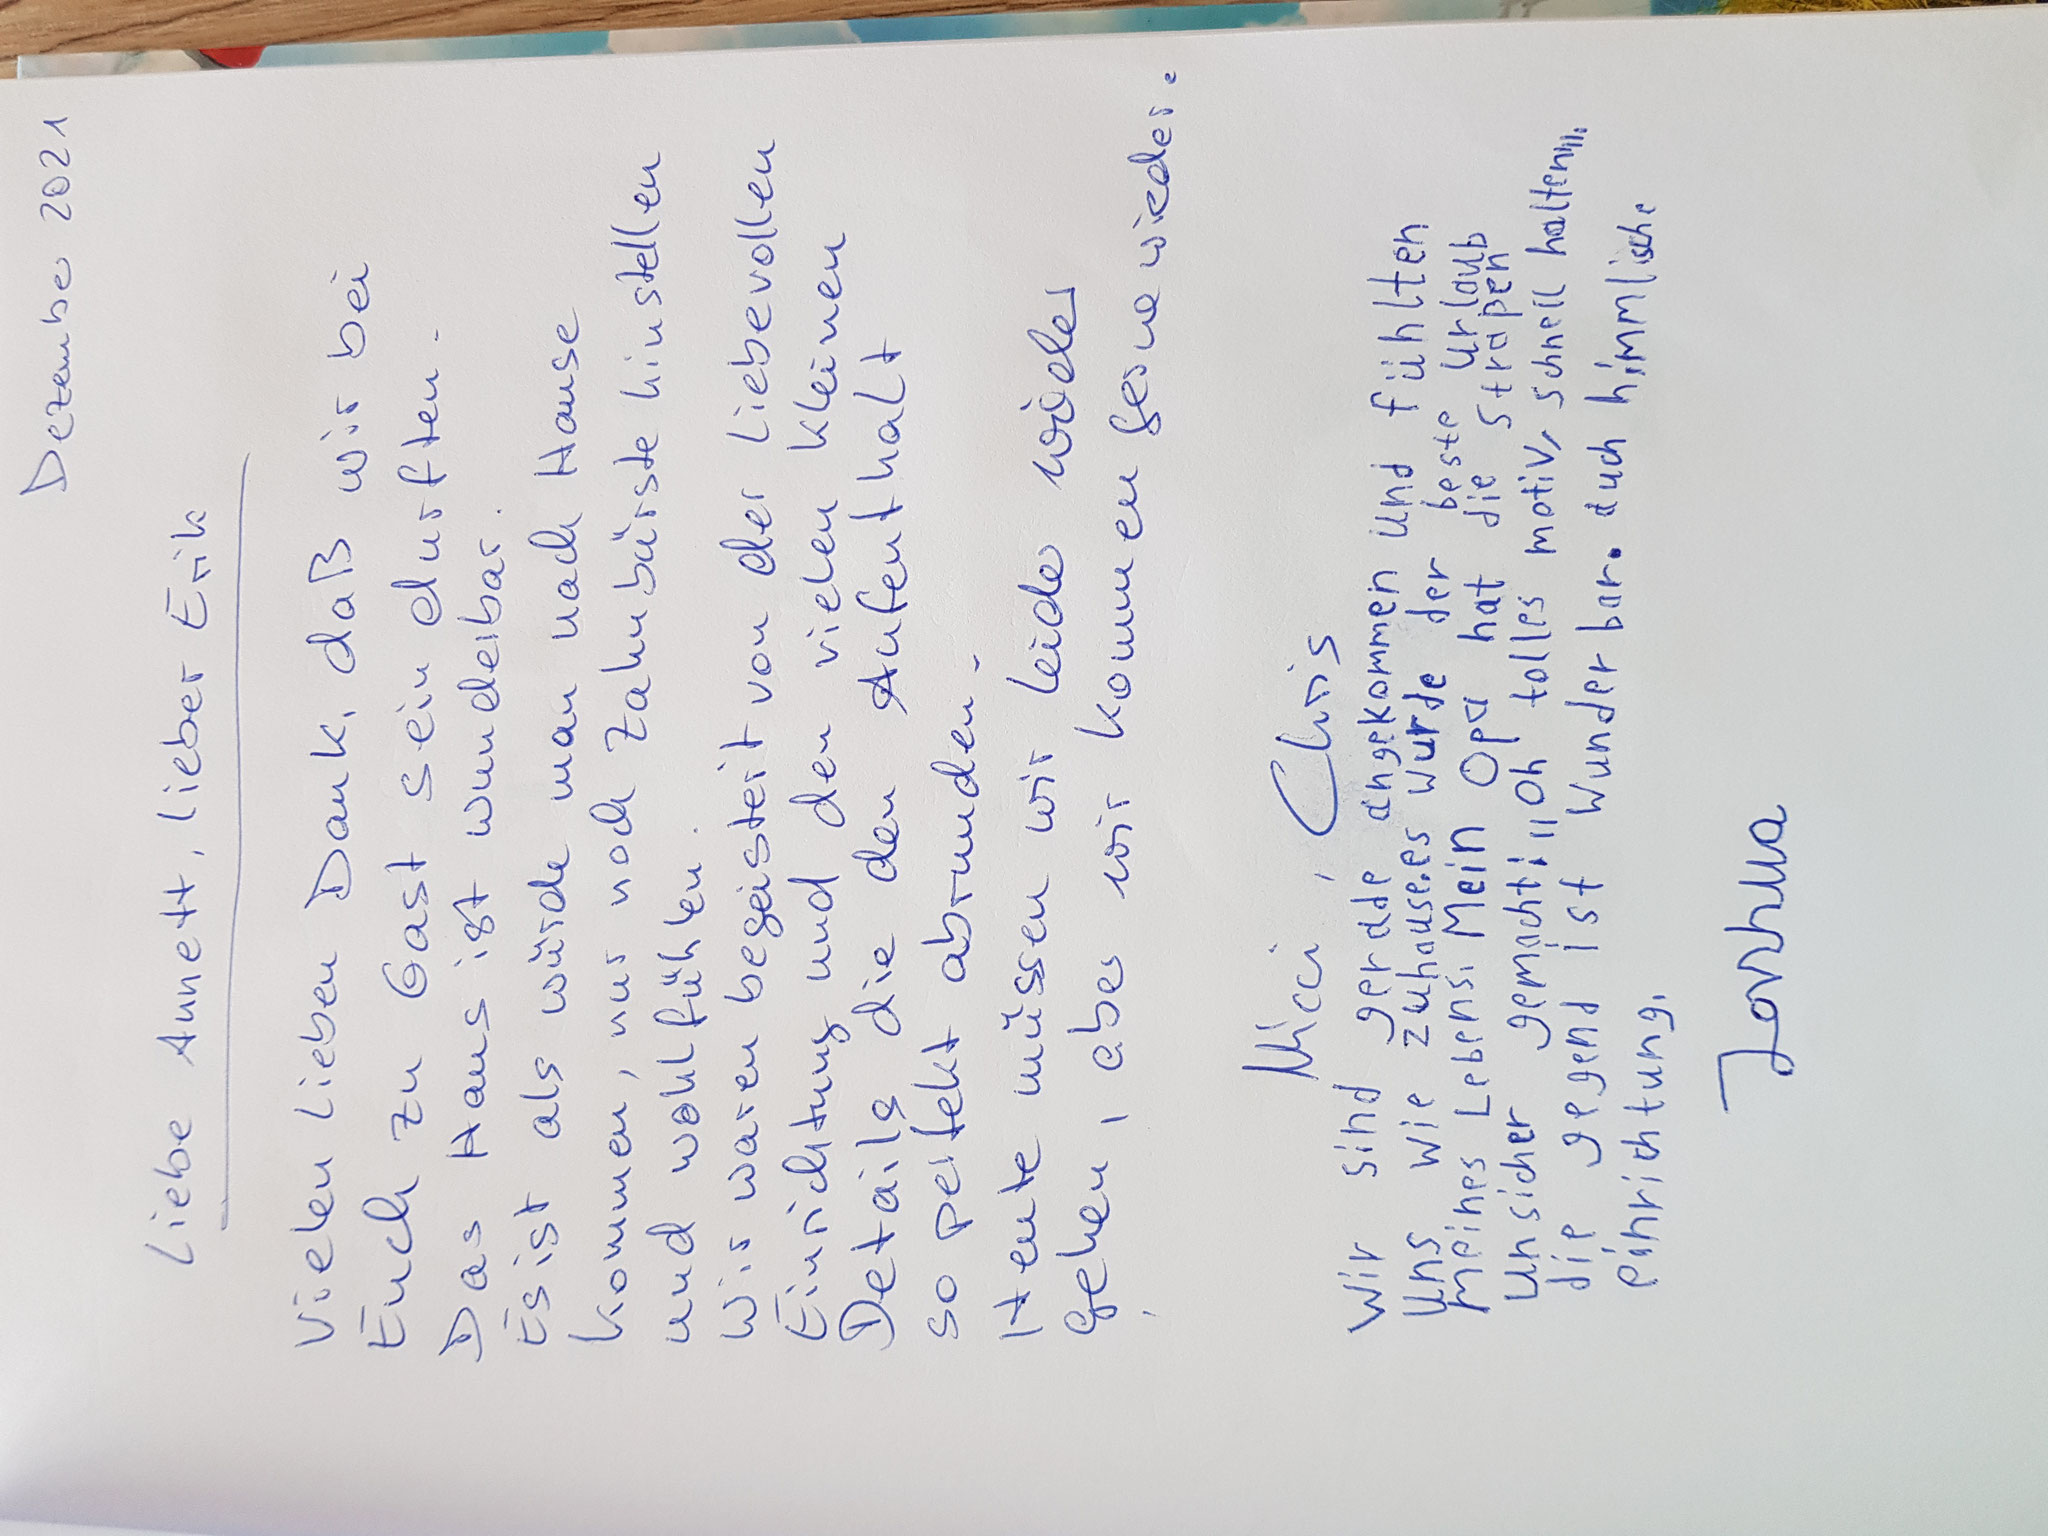 Dezember 2021
Liebe Annett, lieber Erik
Vielen lieben Dank, daß wir bei
Euch zu Gast sein durften.
Das Haus ist wunderbar.
Es ist als würde man nach Hause
kommen, nur noch Zahnbürste hinstellen
und wohlfühlen.
Wir waren begeistert von der liebevollen
Einrichtung und den vielen kleinen
Details die den Aufenthalt
so perfekt abrunden.
Heute müssen wir leider wieder
gehen, aber wir kommen gerne wieder.
Micci, Chris
Wir sind gerade angekommen und fühlten
uns wie zuhause.es wurde der beste Urlaub
meines Lebens. Mein Opa hat die strapen
unsicher gemacht: "Oh tolles motiv, schnell halten"".
die gegend ist Wunderbar. auch himmlische
einrichtung.
Joshua